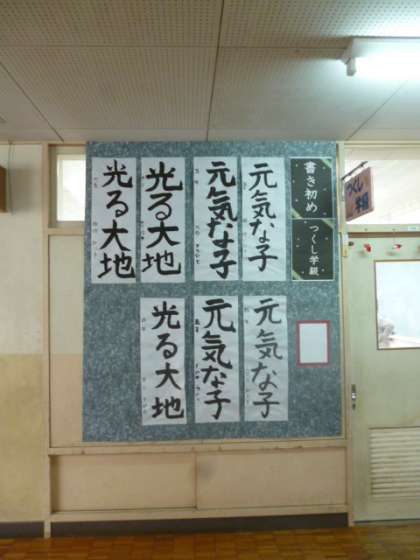 書き初め
つくし学級
元気な子
元気な子
光る大地
光る大地
元気な子
元気な子
光る大地
つくし